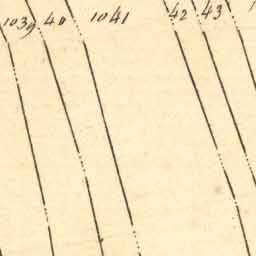 1039 40 1041 42 43